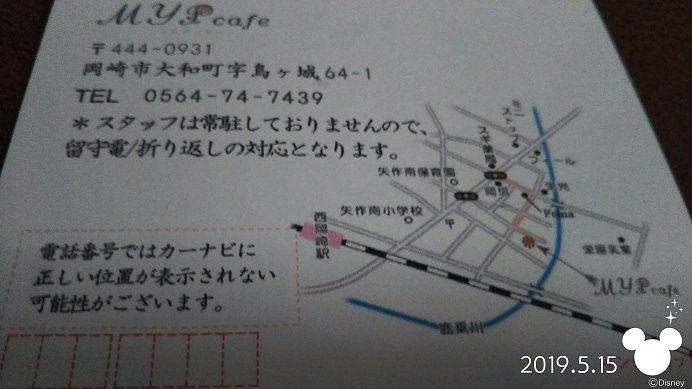 MYP cafe
〒444-0931
岡崎市大和町字鳥ヶ城64-1
TEL 0564-74-7439
＊スタッフは常駐しておりませんので、
留守電/折り返しの対応となります。
電話番号ではカーナビに
正しい位置が表示されない
可能性がございます。
西岡崎駅
矢作南保育園
矢作南小学校
〒
スギ薬局
ミニストップ
岡信
Feina
栄屋乳業
MYP cafe
鹿乗川
2019.5.15
©Disney